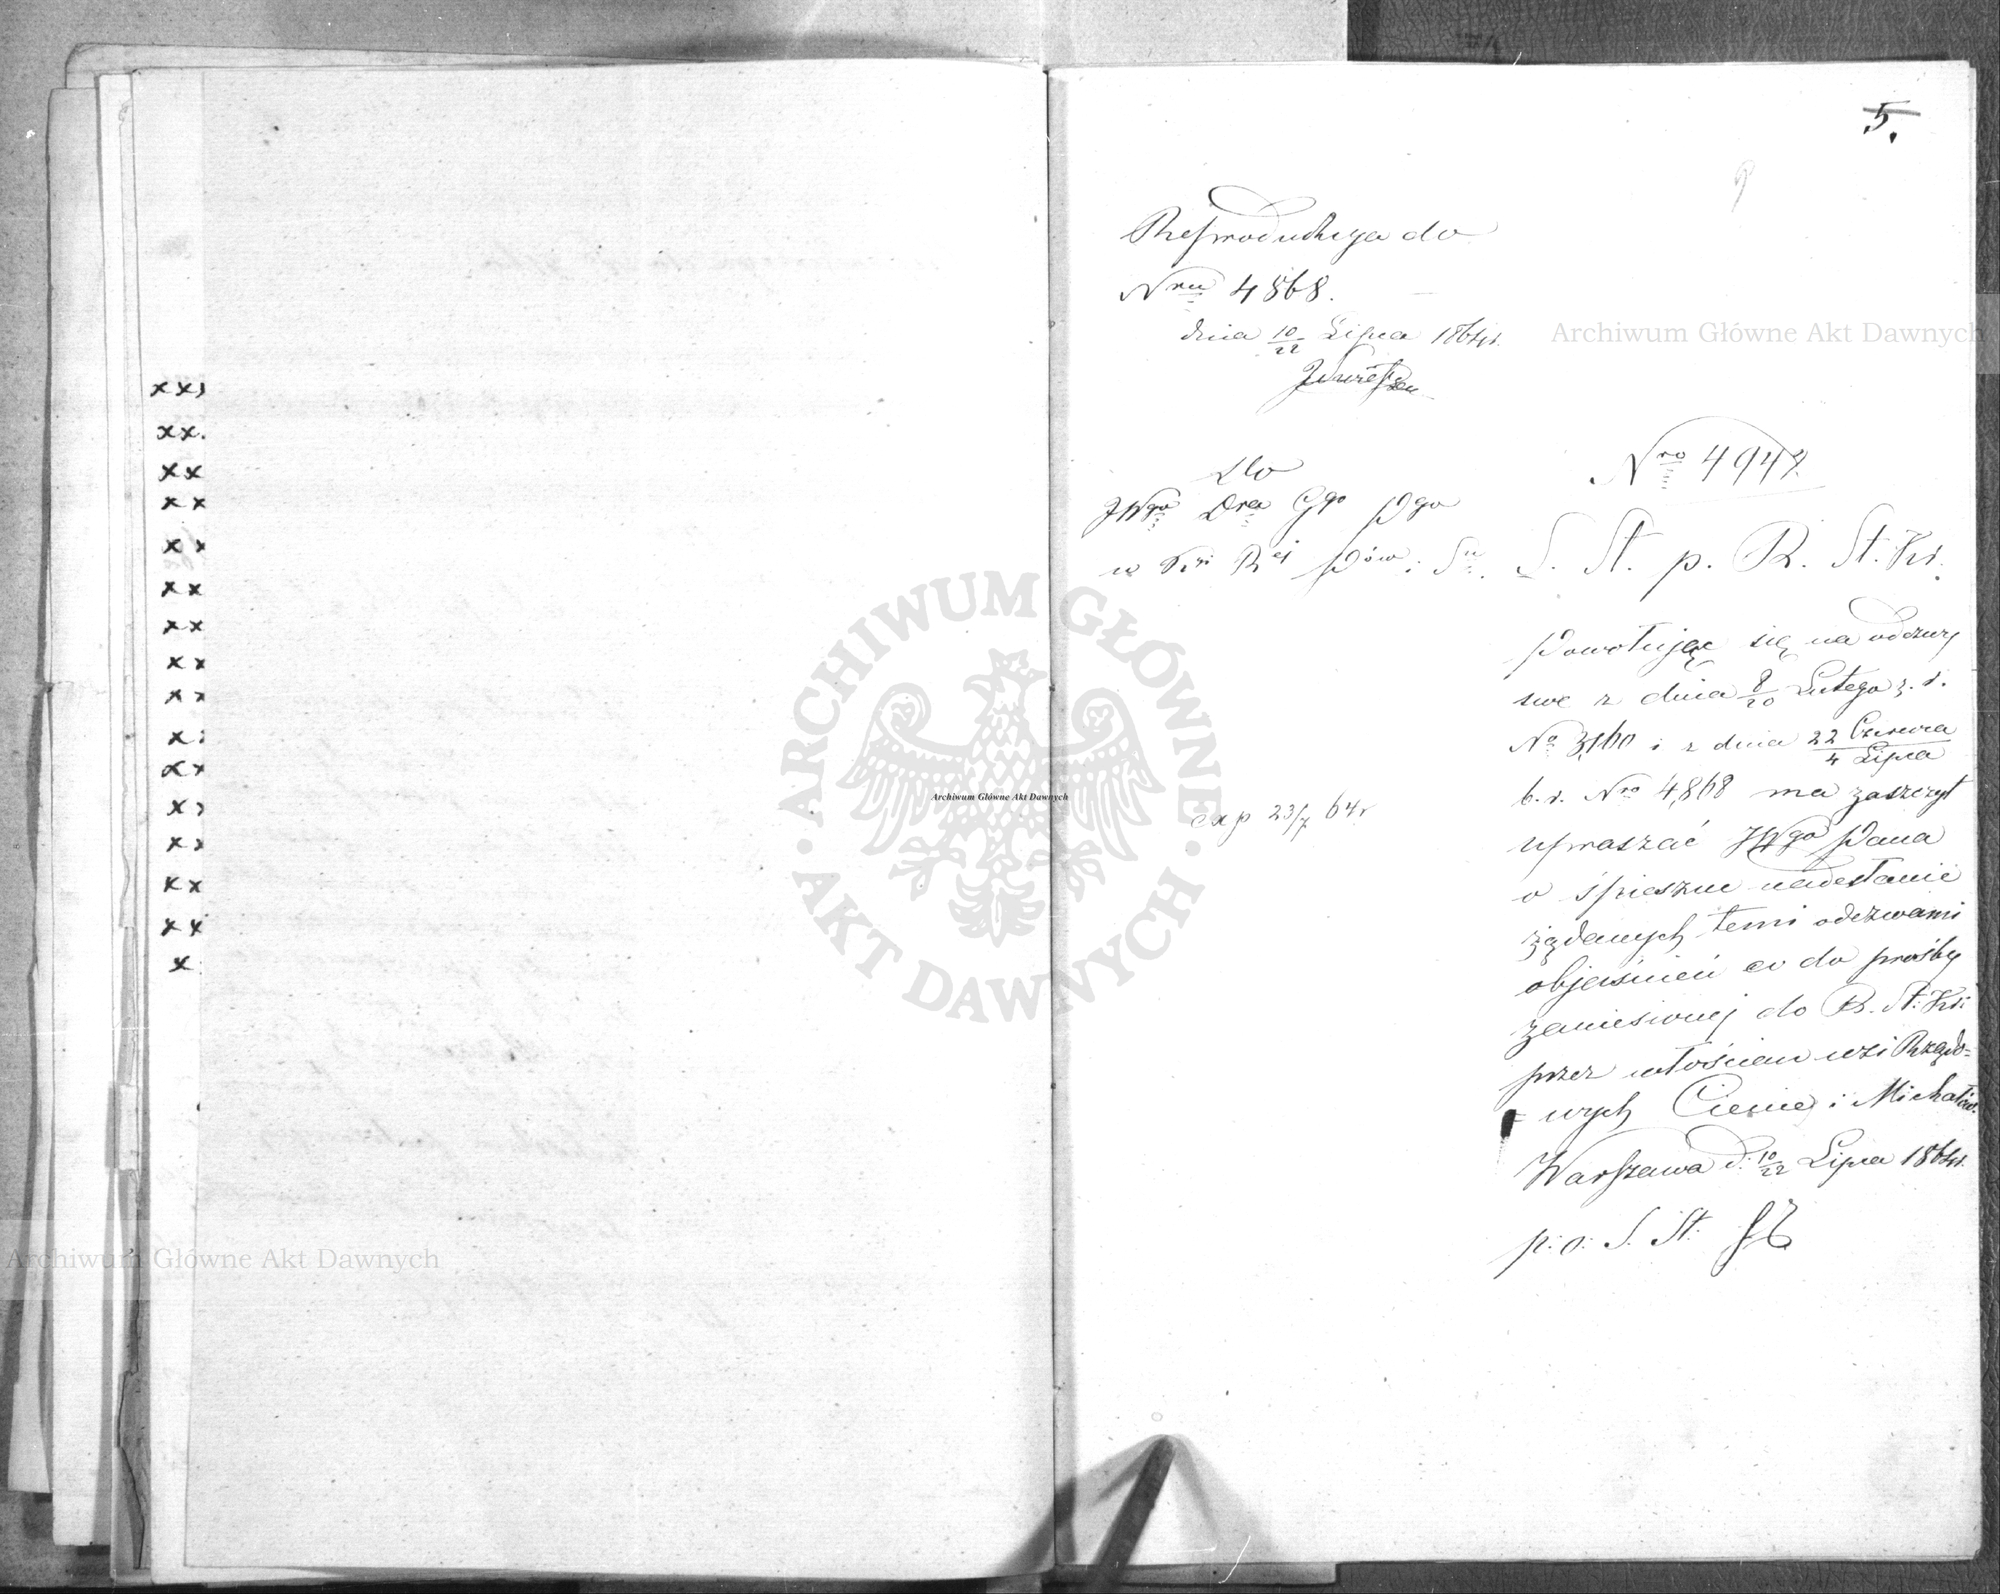 5.
Reprodukcya do
Nru 4868.
dnia 10/22 Lipca 1864 r.
Do
JWgo Dra Ggo Wgo
w Kri Rej Pów i Su.
exp 23/7 64 r
Nro 4947.
S. St. p. R. St. Kr.
Powołując się na odezwy
swe z dnia 8/20 Lutego z. r.
No 3,160 i z dnia 22 Czerwca / 4 Lipca
b. r. Nro 4,868 ma zaszczyt
upraszać JWgo Pana
o śpieszne nadesłanie
żądanych temi odezwami
objaśnień co do prośby
zaniesionej do R. St: Kr:
przez włościan wsi Rządo=
wych Cienie i Michałów.
Warszawa d. 10/22 Lipca 1864 r.
p: o: S. St.
xx
xx.
xx
xx
xx
xx
xx
xx
xx
x
xx
xx
xx
xx
xx
x
Archiwum Główne Akt Dawnych
Archiwum Główne Akt Dawnych
Archiwum Główne Akt Dawnych
· ARCHIWUM GŁÓWNE · AKT DAWNYCH